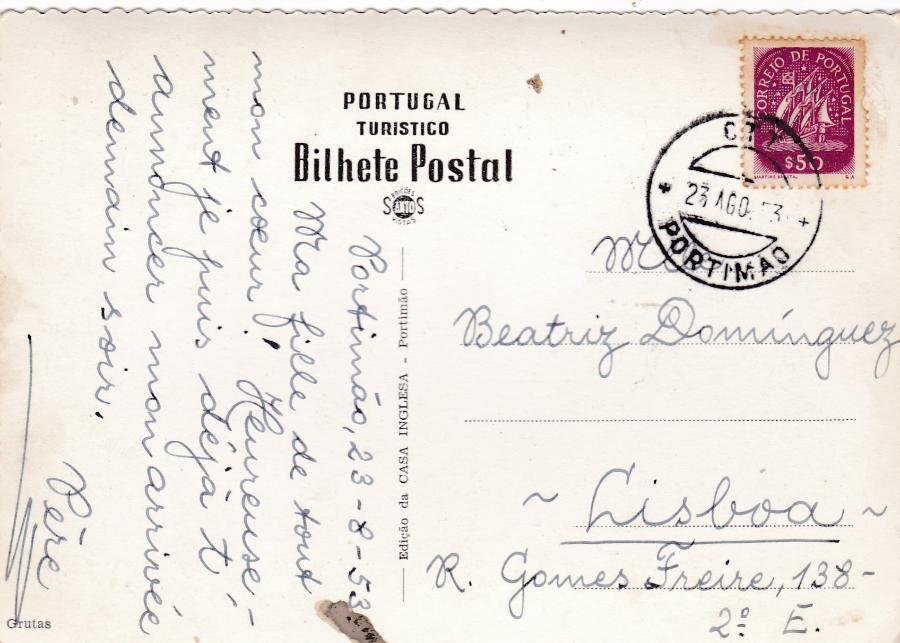 PORTUGAL
TURISTICO
Bilhete Postal
EDIÇÕES
SOS
VISTAS
Edição da CASA INGLESA - Portimão
Grutas
Portimão, 23-8-53
Ma fille de tout
mon cœur! Heureuse-
ment je puis déjà t'
annoncer mon arrivée
demain soir.
Père
CORREIO DE PORTUGAL
$50
CTT
23 AGO. 53
PORTIMAO
Beatriz Domínguez
~ Lisboa ~
R. Gomes Freire, 138-
2º E.